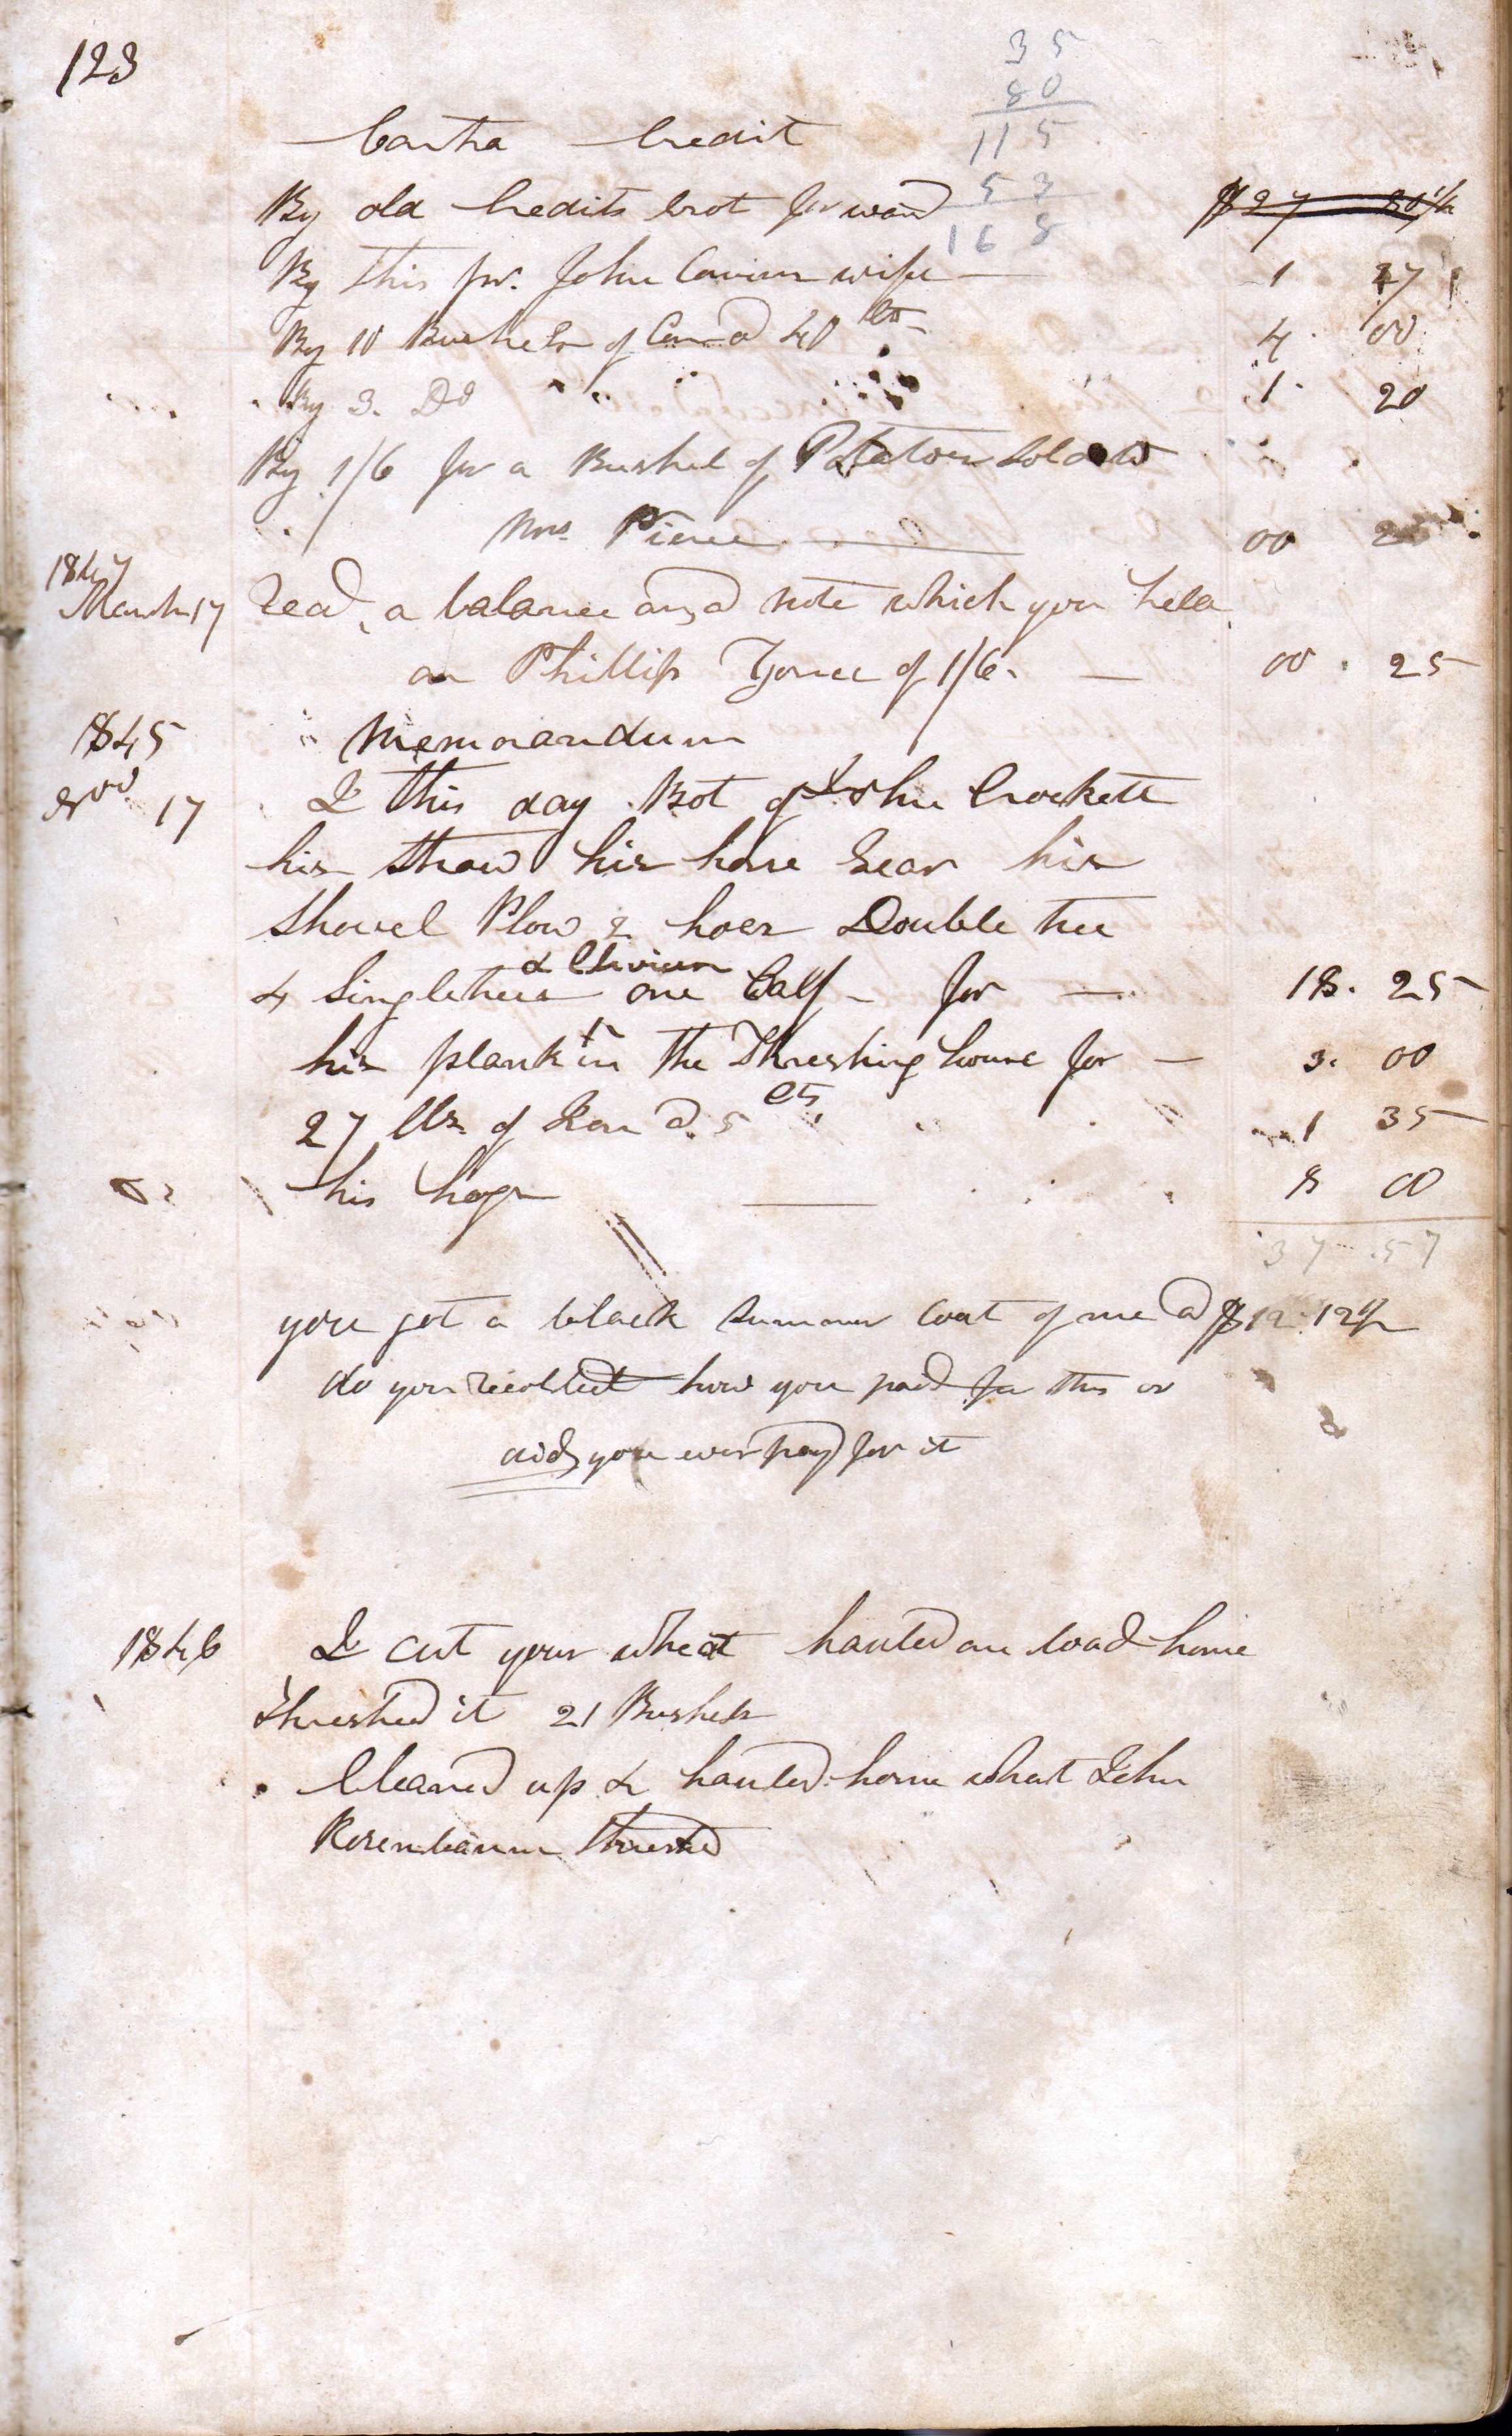 123
35
80
115
53
168
Contra Credit
By old Credits brot forward $27 80½
By this pr. John wife 1 27
By 10 Bushels of Corn @ 40 cts 4. 00
By 3. Do " " 1. 20
By 1/6 for a Bushel of Potatoes sold to
Mrs Pierce 00 25
1847
March 17 Recd, a balance on a note which you held
on Phillip of 1/6. 00. 25
1845 Memorandum
Nov 17 I this day Bot of John Crockett
his Straw his horse Gear his
Shovel Plow 2 hoes Double tree
& Clivises
& Singletrees one Calf - for 18. 25
his plank in the Threshing house for 3. 00
27 lbs of Iron @. 5 cts, 1 35
his hogs 8 00
37.57
you got a black Summer Coat of me @ $12.12½
do you recollect how you paid for this or
did you ever pay for it
1846 I cut your wheat hauled one load home
thrashed it 21 Bushels
Cleaned up & hauled home what John
Rosenbaum thrashed